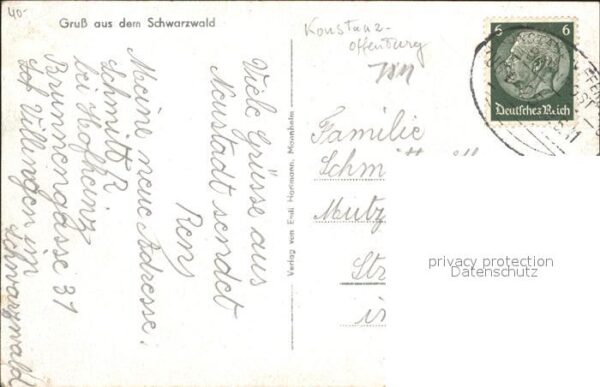 40-
Gruß aus dem Schwarzwald
Viele Grüsse aus
Neustadt sendet
Meine neue Adresse:
Schmitt R
bei Hofheinz
Brunnengasse 31
Villingen im
Schwarzwald
Verlag von Emil Hartmann, Mannheim
Konstanz-
Offenburg
6 6
Deutsches Reich
Familie
Schm
Mutz
Str
in
privacy protection
Datenschutz